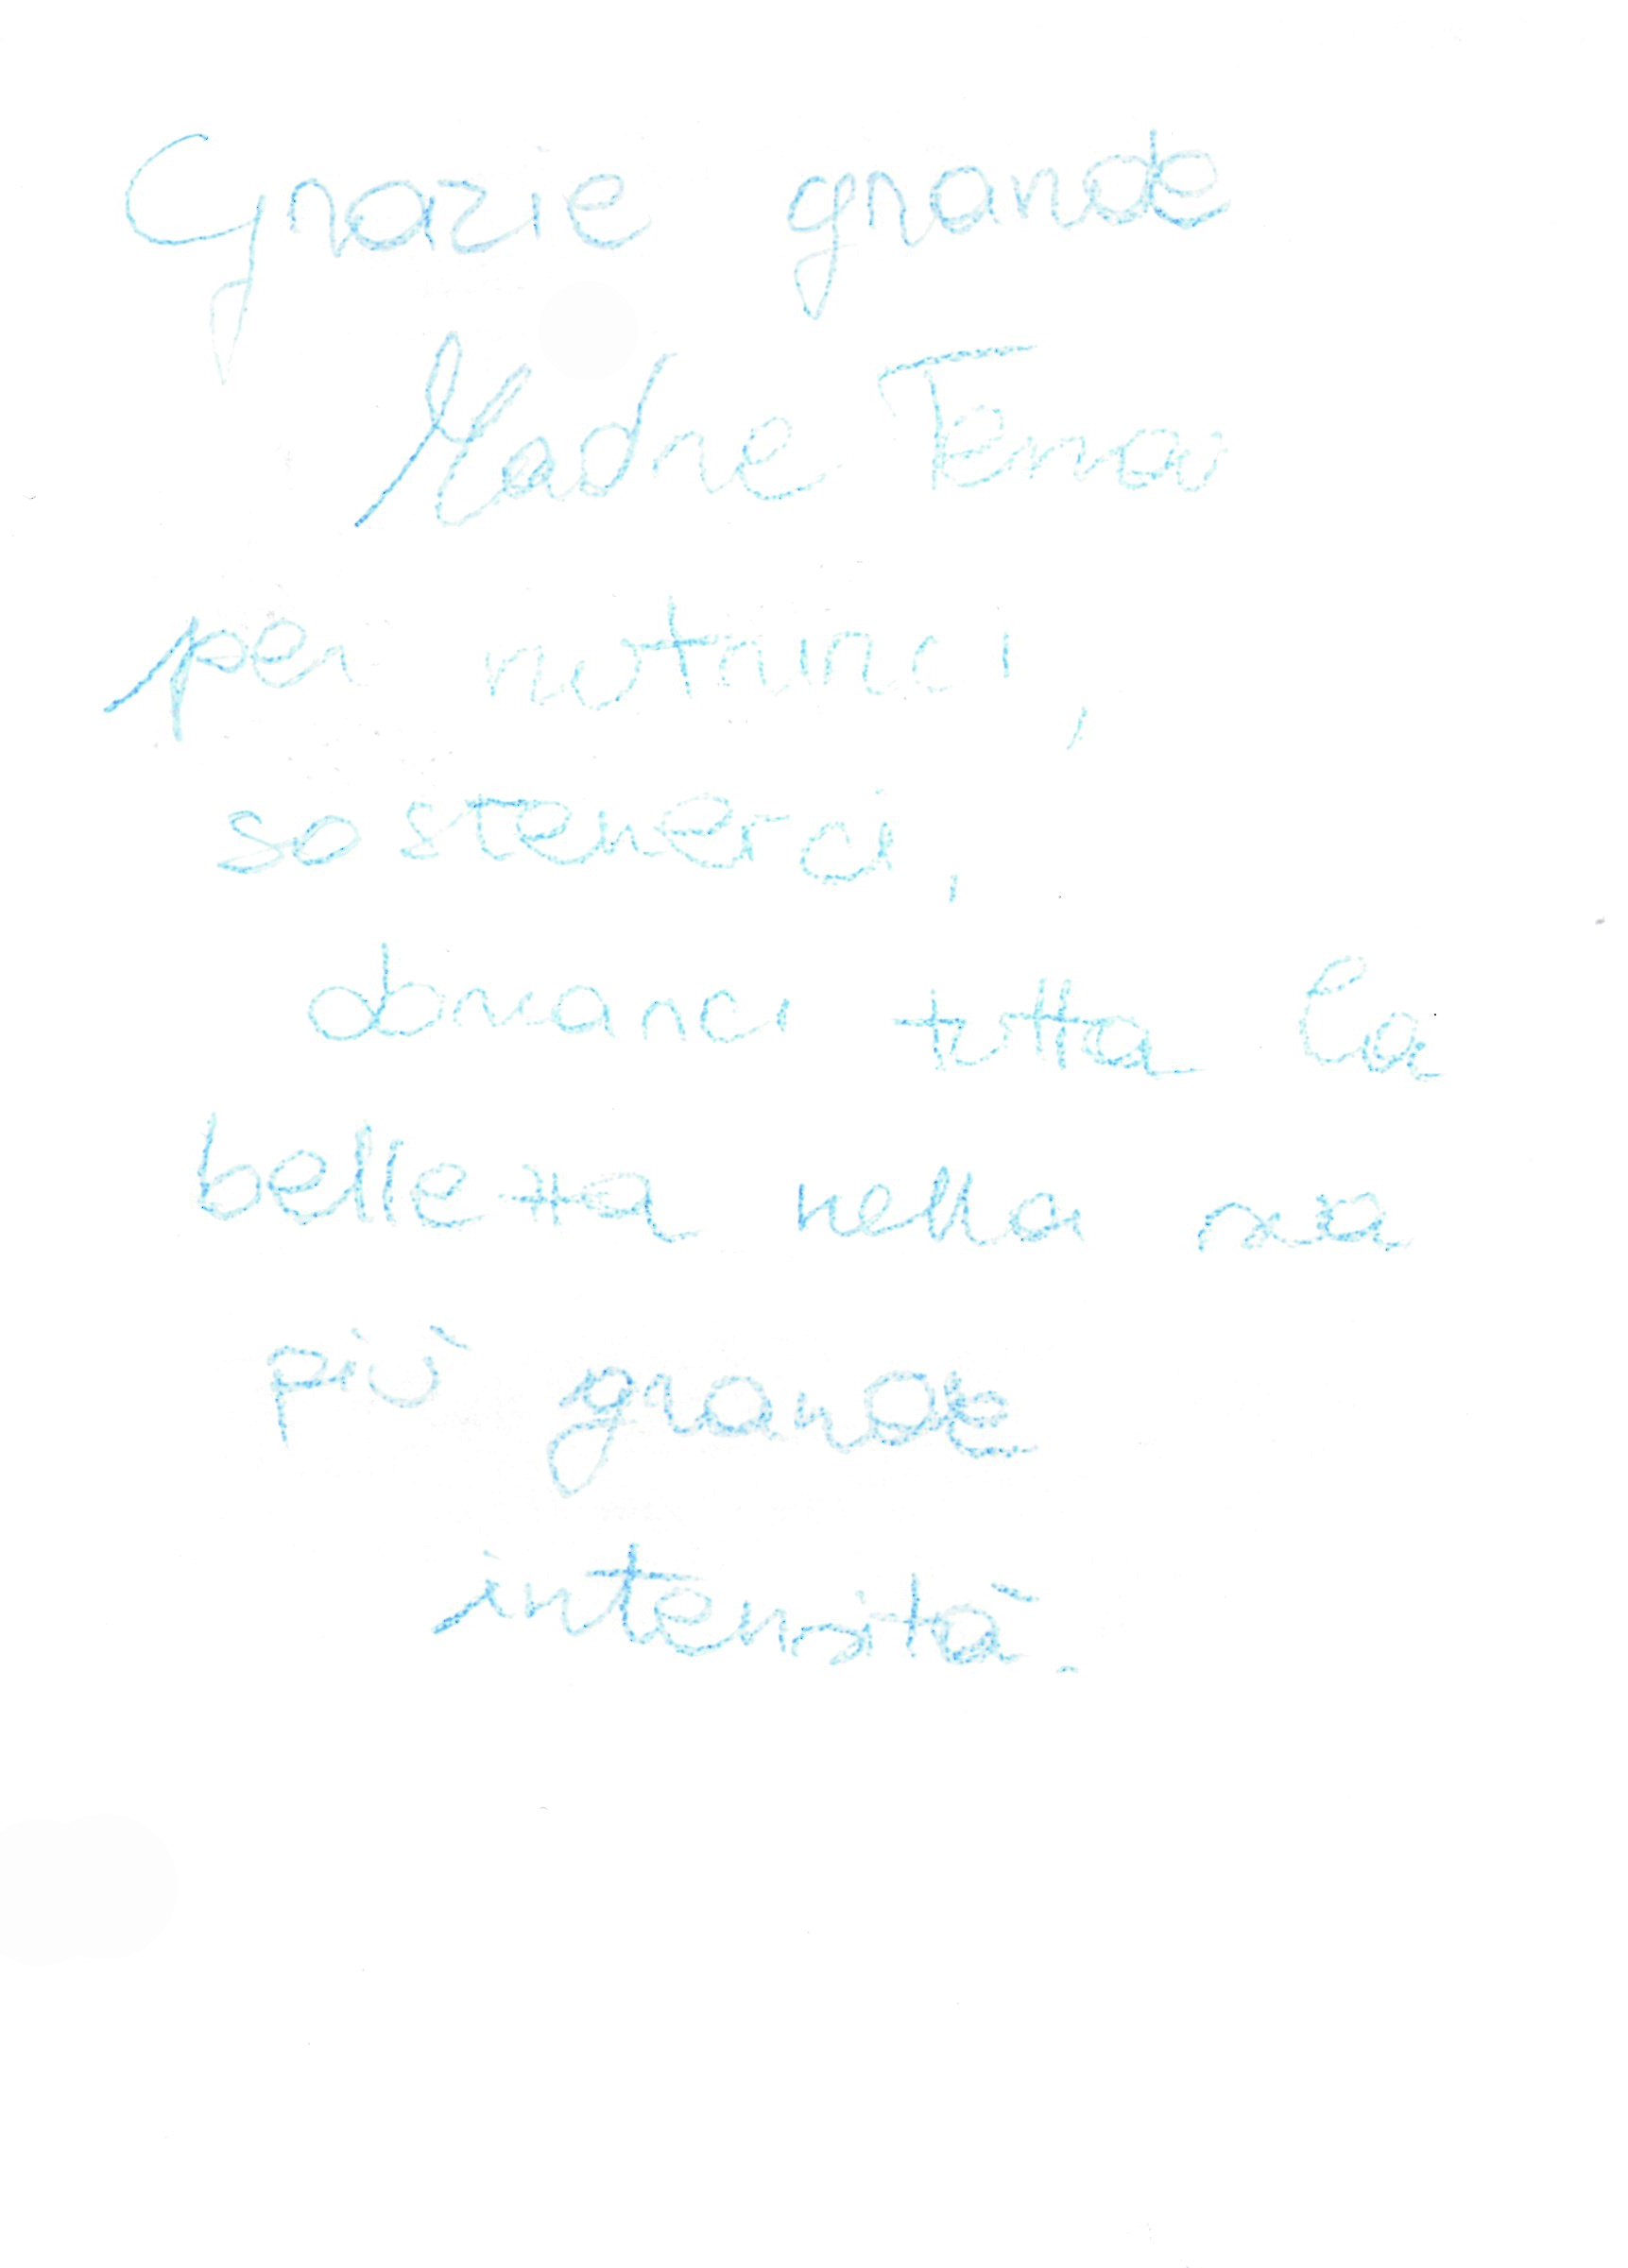 Grazie grande
Madre Terra
per nutrirci,
sostenerci,
donarci tutta la
bellezza nella sua
più grande
intensità.